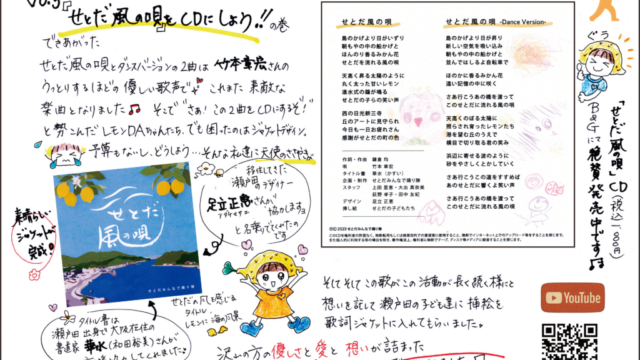 Vol.3
「せとだ風の唄」をCDにしよう!!の巻
できあがった
せとだ風の唄とダンスバージョンの2曲は竹本章宏さんの
うっとりするほどの優しい歌声でこれまた素敵な
楽曲となりました そこで"さあ!この2曲をCDにするぞ!"
と努こんだレモンDAちゃんたち。でも困ったのはジャケットデザイン。
予算もないし、どうしよう…そんな私達に天使のささやきが
移住してきた
瀬戸田の
デザイナー
足立正恵さんが
アダチマサエ
協力しますヨ
と名乗りでてくれたの
です
素晴らしい
ジャケットの
完成!
せとだ
風の唄
せとだみんなで踊り隊
タイトル書は
瀬戸田出身で大阪在住の
書道家 華水(和田裕美)さんが
せとだの風を感じる
タイトル
レモンに海の風景
沢山の方の優しさと愛と想いが詰まった
せとだ風の唄
島のかげより日がいずり
朝もやの中の船かげと
ほんのり香るみかん花
せとだを流れる風の唄
天高く昇る太陽のように
丸く太った甘いレモン
潮水式の鐘が鳴る
せとだの子らの笑い声
西の日光耕三寺
丘のアートに見守られ
今日も一日お疲れさん
感謝がせとだの町の色
作詞・作曲 鎌倉 均
唄 竹本 章宏
タイトル書 華水(かすい)
企画・制作 せとだみんなで踊り隊
スタッフ
デザイン 足立 正恵
挿し絵 せとだの子どもたち
せとだ風の唄 -Dance Version-
島のかげより日が昇り
新しい空気を吸い込み
朝もやの中の船かげと
並んではしるよ自転車で
ほのかに香るみかん花
遠い記憶の中に咲く
さあ行こうあの橋を渡って
このせとだに流れる風の唄
天高くのぼる太陽に
照らされ育ったレモンたち
港を望む丘のうえで
横目で切り取る君の笑み
浜辺に寄せる波のように
時をやさしくとかしていく
さあ行こうこの道をすすめば
あのせとだに響くよ笑い声
さあ行こうあの橋を渡って
このせとだに流れる風の唄
そしてそしてこの歌がこの活動が長く続く様にと
想いを託して瀬戸田の子ども達に挿絵を
歌詞ジャケットに入れてもらいました。
「せとだ風の唄」CD(税込1,000円)
B&Gにて絶賛発売中です
YouTube